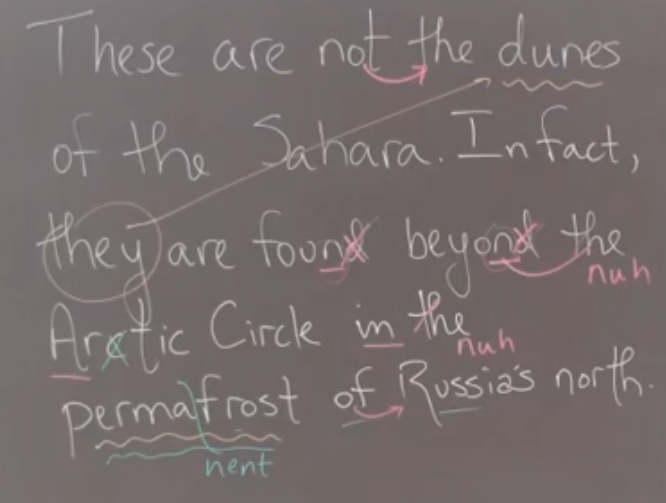 These are not the dunes
of the Sahara. In fact,
they are found beyond the
nuh
Arctic Circle in the
nuh
permafrost of Russia's north.
nent